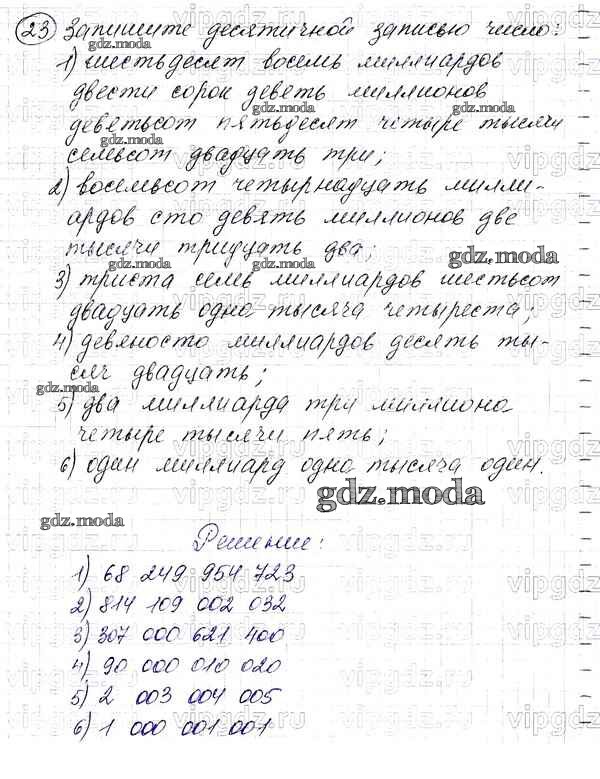 23 Запишите десятичной записью число:
1) шестьдесят восемь миллиардов
двести сорок девять миллионов
девятьсот пятьдесят четыре тысячи
семьсот двадцать три;
2) восемьсот четырнадцать милли-
ардов сто девять миллионов две
тысячи тридцать два;
3) триста семь миллиардов шестьсот
двадцать одна тысяча четыреста;
4) девяносто миллиардов десять ты-
сяч двадцать;
5) два миллиарда три миллиона
четыре тысячи пять;
6) один миллиард одна тысяча один.
gdz.moda
Решение:
1) 68 249 954 723
2) 814 109 002 032
3) 307 000 621 400
4) 90 000 010 020
5) 2 003 004 005
6) 1 000 001 001